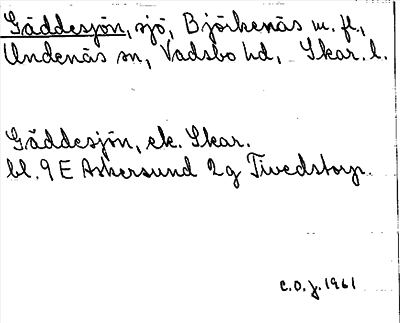 Gäddesjön, sjö, Björkenäs m. fl.,
Undenäs sn, Vadsbo hd, Skar. l.
Gäddesjön, ek. Skar.
bl. 9 E Askersund 2g Tivedstorp.
C.O.J. 1961